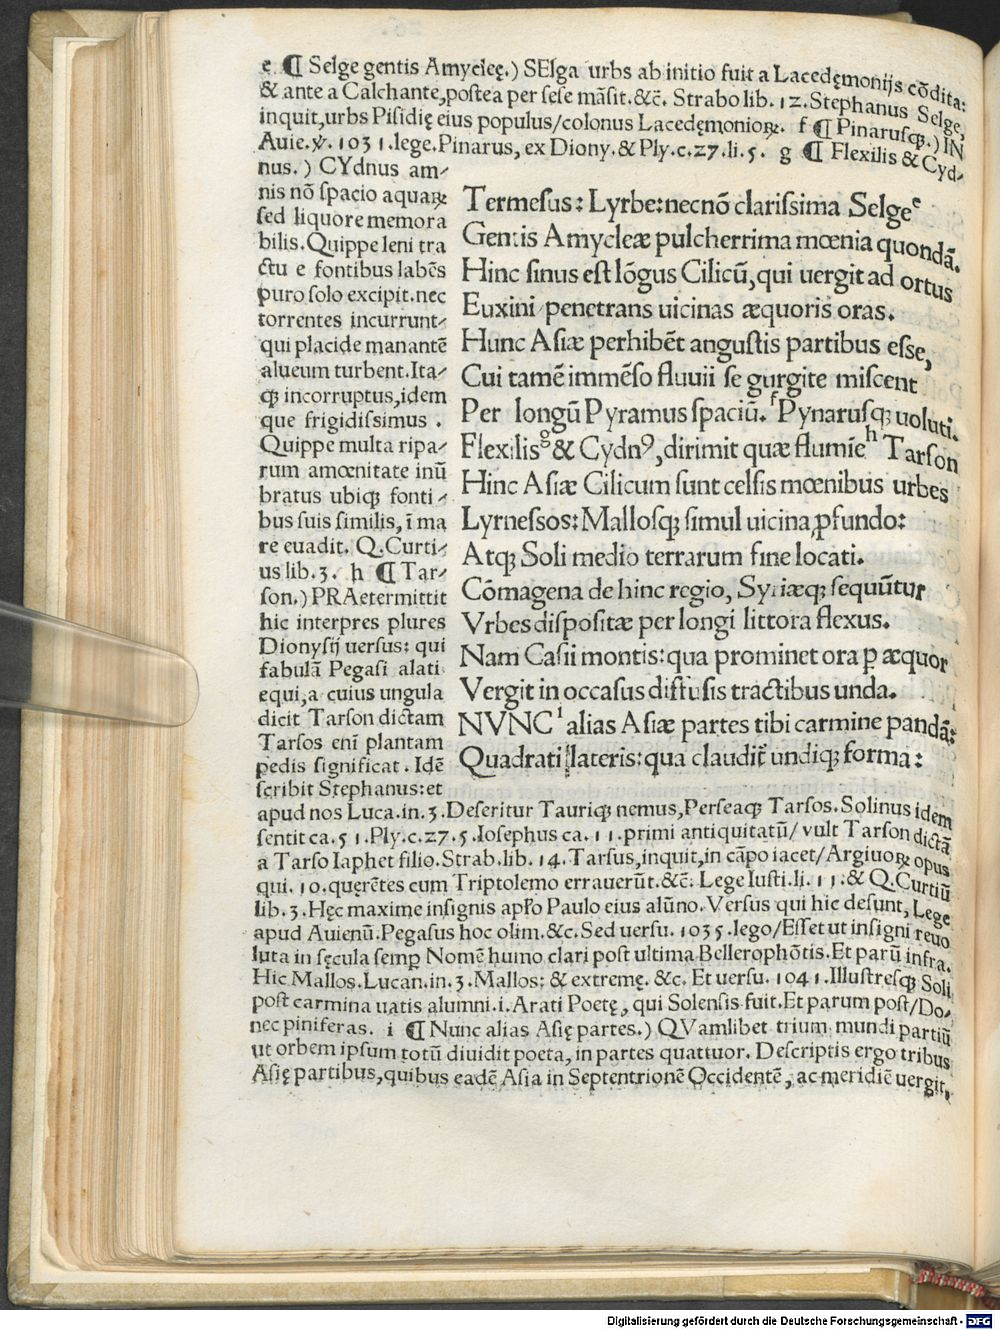 e ¶ Selge gentis Amycleę.) SElga urbs ab initio fuit a Lacedęmonijs cõdita:
& ante a Calchante, postea per sese mãsit. &c̃. Strabo lib. 12. Stephanus Selge,
inquit, urbs Pisidię eius populus/colonus Lacedęmonioꝝ. f ¶ Pinarusꝗ.) IN
Auie. ꝟ. 1031. lege. Pinarus, ex Diony. & Ply. c. 27. li. 5. g ¶ Flexilis & Cyd-
nus.) CYdnus am-
nis nõ spacio aquaꝝ
sed liquore memora
bilis. Quippe leni tra
ctu e fontibus labẽs
puro solo excipit. nec
torrentes incurrunt-
qui placide manantẽ
alueum turbent. Ita-
ꝗ incorruptus, idem
que frigidissimus.
Quippe multa ripa-
rum amœnitate inũ
bratus ubiꝗ fonti-
bus suis similis, ĩ ma
re euadit. Q. Curti-
us lib. 3. h ¶ Tar-
son.) PRAetermittit
hic interpres plures
Dionysij uersus: qui
fabulã Pegasi alati
equi, a cuius ungula
dicit Tarson dictam
Tarsos enĩ plantam
pedis significat. Idẽ
scribit Stephanus: et
Termesus: Lyrbe: necnõ clarissima Selge e
Gentis Amycleæ pulcherrima mœnia quondã.
Hinc sinus est lõgus Cilicũ, qui uergit ad ortus
Euxini penetrans uicinas æquoris oras.
Hunc Asiæ perhibẽt angustis partibus esse,
Cui tamẽ immẽso fluuii se gurgite miscent
Per longũ Pyramus spaciũ. f Pynarusꝗ uoluti.
Flexilis g & Cydnꝰ, dirimit quæ flumĩe h Tarson
Hinc Asiæ Cilicum sunt celsis mœnibus urbes
Lyrnessos: Mallosꝗ simul uicina ꝓfundo:
Atꝗ Soli medio terrarum fine locati.
Cõmagena de hinc regio, Syriæꝗ sequũtur
Vrbes dispositæ per longi littora flexus.
Nam Casii montis: qua prominet ora ꝑ æquor
Vergit in occasus diffusis tractibus unda.
NVNC i alias Asiæ partes tibi carmine pandã:
Quadrati lateris: qua claudit̃ undiꝗ forma:
apud nos Luca. in. 3. Deseritur Tauriꝗ nemus, Perseaꝗ Tarsos. Solinus idem
sentit ca. 51. Ply. c. 27. 5. Iosephus ca. 11. primi antiquitatũ/ vult Tarson dictã
a Tarso Iaphet filio. Strab. lib. 14. Tarsus, inquit, in cãpo iacet/ Argiuoꝝ opus
qui. 10. quęrẽtes cum Triptolemo errauerũt. &c̃. Lege Iusti. li. 11. & Q. Curtiũ
lib. 3. Hęc maxime insignis apl̃o Paulo eius alũno. Versus qui hic desunt, Lege
apud Auienũ. Pegasus hoc olim. &c. Sed uersu. 1035. lego/ Esset ut insigni reuo
luta in sęcula semꝑ Nomẽ humo clari post ultima Bellerophõtis. Et parũ infra.
Hic Mallos. Lucan. in. 3. Mallos: & extremę. &c. Et uersu. 1041. Illustresꝗ Soli
post carmina uatis alumni. i. Arati Poetę, qui Solensis fuit. Et parum post/ Do-
nec piniferas. i ¶ Nunc alias Asię partes.) QVamlibet trium mundi partiũ
ut orbem ipsum totũ diuidit poeta, in partes quattuor. Descriptis ergo tribus
Asię partibus, quibus eadẽ Asia in Septentrionẽ Occidentẽ, ac meridiẽ uergit,
Digitalisierung gefördert durch die Deutsche Forschungsgemeinschaft - DFG